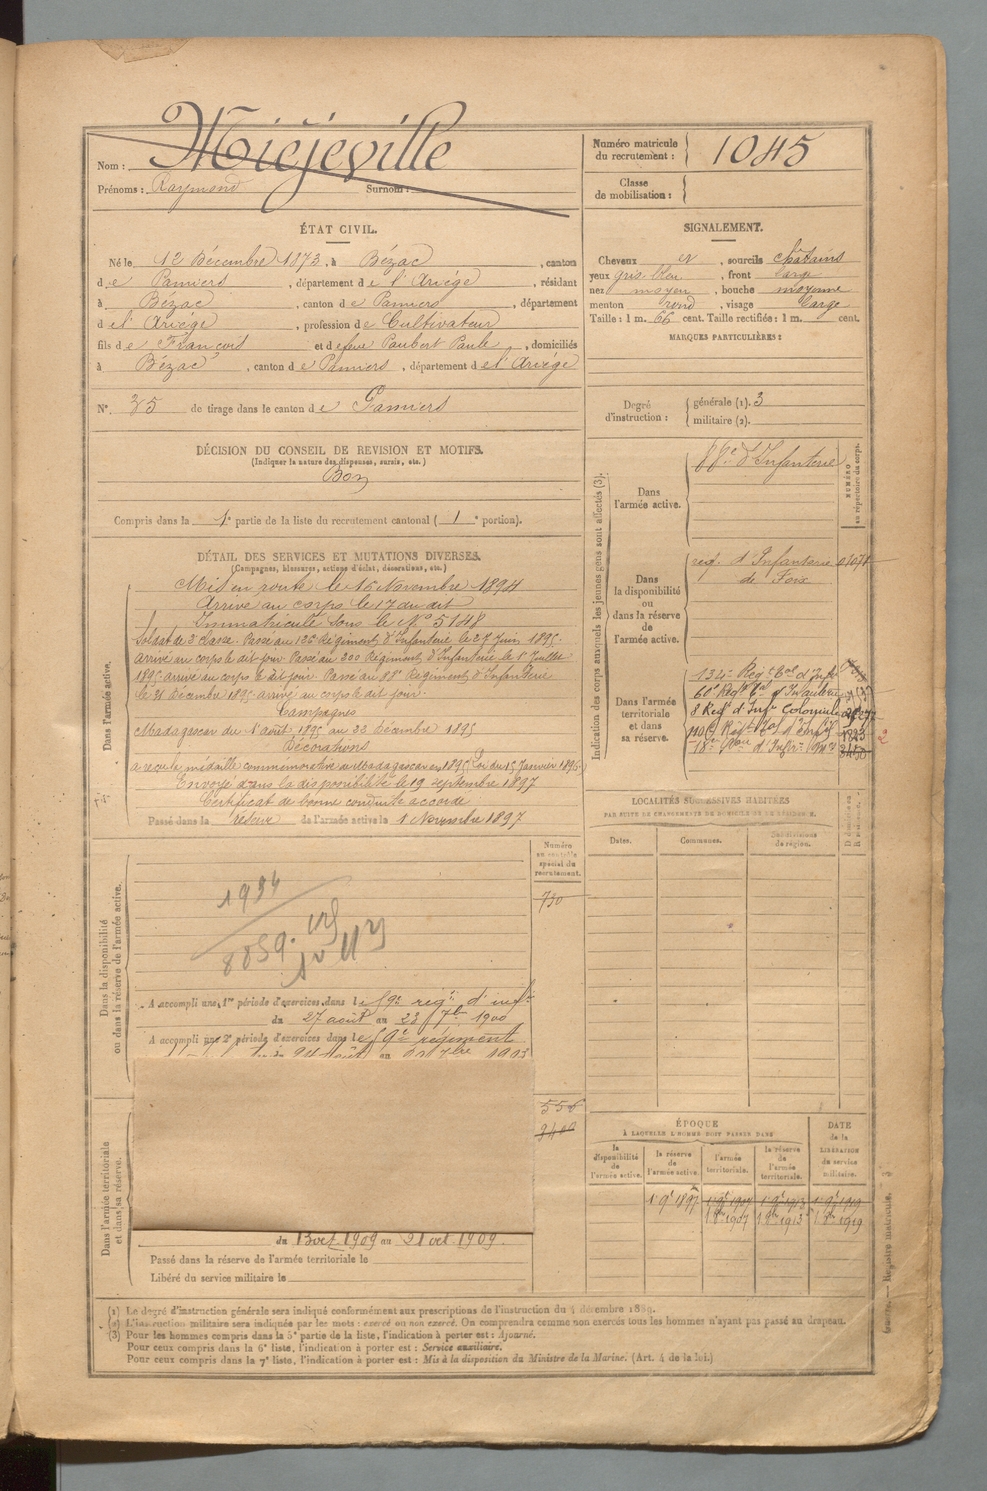 Nom : Miéjeville
Prénoms : Raymond Surnom :
Numéro matricule du recrutement : 1045
Classe de mobilisation :
ÉTAT CIVIL.
Né le 12 Décembre 1873, à Bézac, canton
de Pamiers, département de l'Ariége, résidant
à Bézac, canton de Pamiers, département
de l'Ariége, profession de Cultivateur
fils de François et de feue Paubert Paule, domiciliés
à Bézac, canton de Pamiers, département de l'Ariége
N° 35 de tirage dans le canton de Pamiers
SIGNALEMENT.
Cheveux et, sourcils châtains
yeux gris bleu, front large
nez moyen, bouche moyenne
menton rond, visage large
Taille : 1 m. 66 cent. Taille rectifiée : 1 m. cent.
MARQUES PARTICULIÈRES :
Degré d'instruction : générale (1). 3
militaire (2).
DÉCISION DU CONSEIL DE REVISION ET MOTIFS.
(Indiquer la nature des dispenses, sursis, etc.)
Bon
Compris dans la 1e partie de la liste du recrutement cantonal ( 1e portion).
DÉTAIL DES SERVICES ET MUTATIONS DIVERSES.
(Campagnes, blessures, actions d'éclat, décorations, etc.)
Dans l'armée active.
Mis en route le 16 Novembre 1894
Arrivé au corps le 17 du dit
Immatriculé sous le N° 5148
Soldat de 2 classe. Passé au 126 Régiment d'Infanterie le 27 Juin 1895.
Arrivé au corps le dit jour. Passé au 200 Régiment d'Infanterie le 1er Juillet
1895 arrivé au corps le dit jour. Passé au 88e Régiment d'Infanterie
le 31 décembre 1895 arrivé au corps le dit jour.
Campagnes
Madagascar du 1er août 1895 au 23 décembre 1895
Décorations
a reçu la médaille commémorative de Madagascar en 1895 Loi du 15 Janvier 1896
Envoyé dans la disponibilité le 19 septembre 1897
Certificat de bonne conduite accordé
Passé dans la réserve de l'armée active le 1 Novembre 1897
Indication des corps auxquels les jeunes gens sont affectés (3).
NUMÉRO au répertoire du corps.
Dans l'armée active.
88e d'Infanterie
Dans la disponibilité ou dans la réserve de l'armée active.
reg. d'Infanterie
de Foix
Dans l'armée territoriale et dans sa réserve.
134e Regt tal d'Infie
60e Regt tal d'Infanterie
8 Regt d'Infie Coloniale
1823
LOCALITÉS SUCCESSIVES HABITÉES
PAR SUITE DE CHANGEMENTS DE DOMICILE OU DE RÉSIDENCE.
Dates. Communes. Subdivisions de région.
Numéro au contrôle spécial du recrutement.
730
Dans la disponibilité ou dans la réserve de l'armée active.
1934
8859.
A accompli une 1re période d'exercices dans le 59e régt d'infie
du 27 août au 23 7bre 1900
A accompli une 2e période d'exercices dans le 59e régiment
556
Dans l'armée territoriale et dans sa réserve.
du 13 oct 1909 au 21 oct 1909.
Passé dans la réserve de l'armée territoriale le
Libéré du service militaire le
ÉPOQUE
À LAQUELLE L'HOMME DOIT PASSER DANS
la disponibilité de l'armée active. la réserve de l'armée active. l'armée territoriale. la réserve de l'armée territoriale.
DATE de la LIBÉRATION du service militaire.
1 9e 1897 1 9e 1907 1 9e 1913 1 9e 1919
1 8e 1907 1 8e 1913 1 8e 1919
(1) Le degré d'instruction générale sera indiqué conformément aux prescriptions de l'instruction du 4 décembre 1889.
(2) L'instruction militaire sera indiquée par les mots : exercé ou non exercé. On comprendra comme non exercés tous les hommes n'ayant pas passé au drapeau.
(3) Pour les hommes compris dans la 5e partie de la liste, l'indication à porter est : Ajourné.
Pour ceux compris dans la 6e liste, l'indication à porter est : Service auxiliaire.
Pour ceux compris dans la 7e liste, l'indication à porter est : Mis à la disposition du Ministre de la Marine. (Art. 4 de la loi.)
Registre matricule.